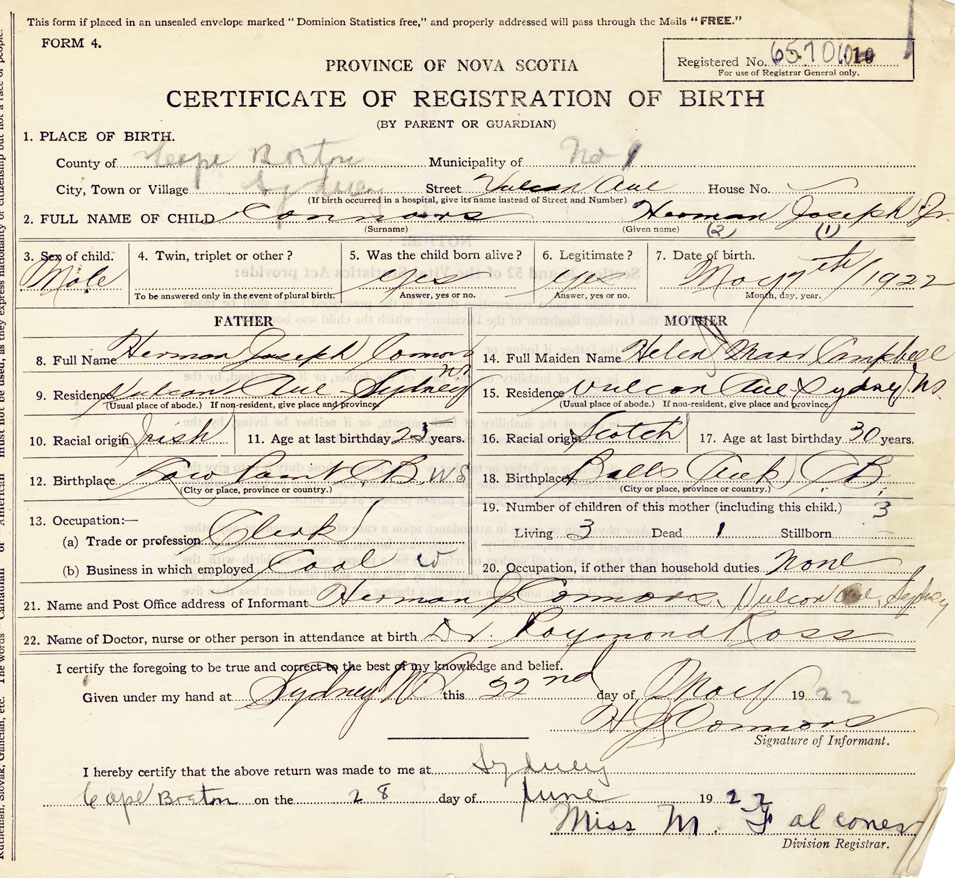 This form if placed in an unsealed envelope marked "Dominion Statistics free," and properly addressed will pass through the Mails "FREE."
FORM 4.
Registered No. 65701010
For use of Registrar General only.
PROVINCE OF NOVA SCOTIA
CERTIFICATE OF REGISTRATION OF BIRTH
(BY PARENT OR GUARDIAN)
1. PLACE OF BIRTH.
County of Cape Breton Municipality of No 1
City, Town or Village Sydney Street Vulcan Ave House No.
(If birth occurred in a hospital, give its name instead of Street and Number)
2. FULL NAME OF CHILD Connors Herman Joseph Jr.
(Surname) (Given name) (2) (1)
3. Sex of child. Male
4. Twin, triplet or other? To be answered only in the event of plural birth.
5. Was the child born alive? yes Answer, yes or no.
6. Legitimate? yes Answer, yes or no.
7. Date of birth. May 7th/1922 Month, day, year.
FATHER
8. Full Name Herman Joseph Connors
9. Residence Vulcan Ave Sydney NS
(Usual place of abode.) If non-resident, give place and province.
10. Racial origin Irish 11. Age at last birthday 23 years.
12. Birthplace C B
(City or place, province or country.)
13. Occupation:—
(a) Trade or profession Clerk
(b) Business in which employed Coal
MOTHER
14. Full Maiden Name Helen Campbell
15. Residence Vulcan Ave Sydney NS.
(Usual place of abode.) If non-resident, give place and province.
16. Racial origin Scotch 17. Age at last birthday 30 years.
18. Birthplace Balls Creek C.B.
(City or place, province or country.)
19. Number of children of this mother (including this child.) 3
Living 3 Dead 1 Stillborn
20. Occupation, if other than household duties None
21. Name and Post Office address of Informant Herman J Connors, Vulcan Ave, Sydney
22. Name of Doctor, nurse or other person in attendance at birth Dr. Raymond Ross
I certify the foregoing to be true and correct to the best of my knowledge and belief.
Given under my hand at Sydney NS this 22nd day of May 1922
H J Connors
Signature of Informant.
I hereby certify that the above return was made to me at Sydney
Cape Breton on the 28 day of June 1922
Miss M. Falconer
Division Registrar.